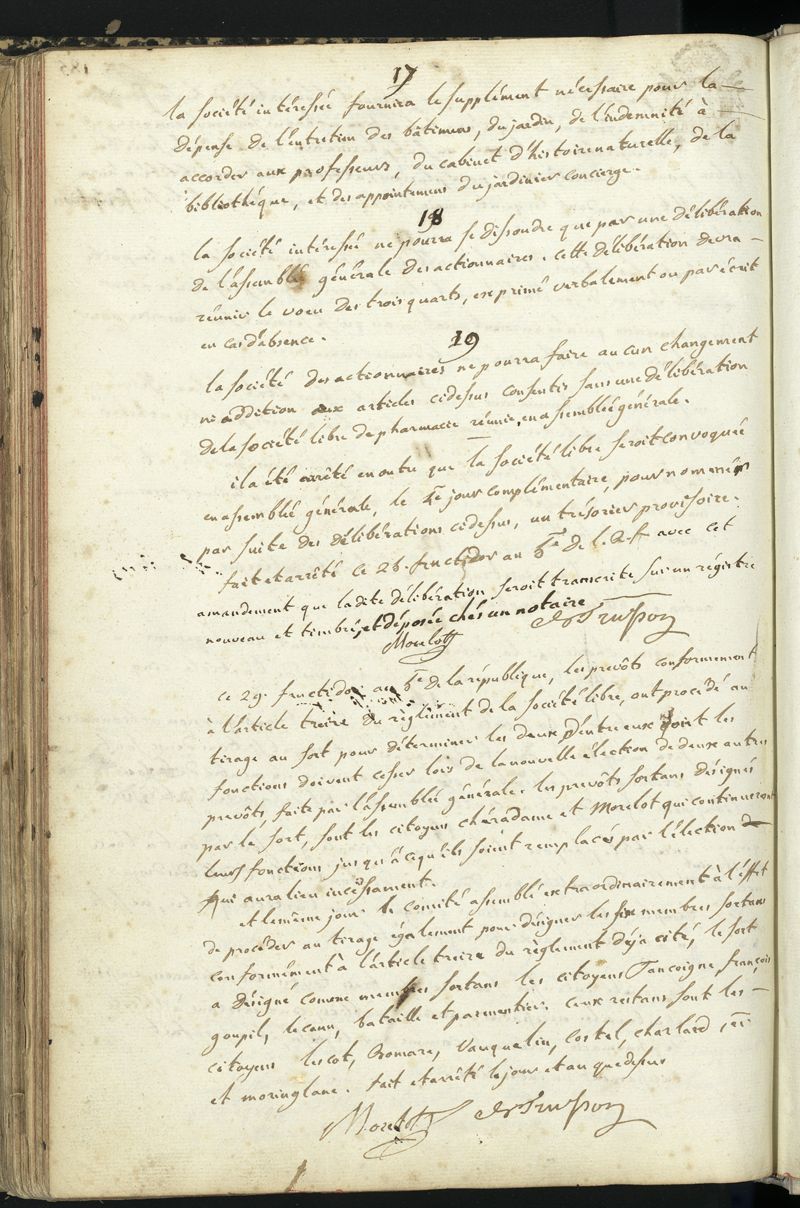 17
la société intéressée fournira le supplément nécessaire pour la
dépense de l'entretien des bâtimens, du jardin, de l'indemnité à
accorder aux professeurs, du cabinet d'histoire naturelle, de la
bibliothéque, et des appointemens du jardinier concierge.
18
la société intéressée ne pourra se dissoudre que par une délibération
de l'assemblée générale des actionnaires. cette délibération devra
réunir le voeu des trois quarts, exprimé verbalement ou par écrit
en cas d'absence.
19
la société des actionnaires ne pourra faire aucun changement
ni addition aux articles cidessus consentis sans une délibération
de la société libre de pharmacie réunie en assemblée générale.
il a été arrêté en outre que la société libre seroit convoquée
en assemblée générale, le jour complémentaire, pour nommer
par suite des délibérations cidessus, un trésorier provisoire.
fait et arrêté ce 26. fructidor an 6.e de l. R.f. avec cet
amandement que ladite délibération seroit transcrite sur un régistre
nouveau et timbré, et déposée chés un notaire
Morelot Trusson
ce 29. fructidor an 6.e de la république, les prevôts conformement
à l'article treize du règlement de la société libre, ont procédé au
tirage au sort pour déterminer les deux d'entre eux dont les
fonctions doivent cesser lors de la nouvelle élection de deux autres
prevôts, faite par l'assemblée générale. les prevôts sortans désignés
par le sort, sont les citoyens chéradame et Morelot qui continueront
leurs fonctions jusqu'à ce qu'ils soient remplacés par l'élection
qui aura lieu incessament.
et le même jour le comité assemblé extraordinairement à l'éffet
de procéder au tirage également pour désigner les six membres sortans
conformément à l'article treize du règlement déja cité, le sort
a désigné comme membres sortans les citoyens Tancoigne, françois,
goupil, lecanu, bataille et parmentier. ceux restans sont les
citoyens lescot, Bomare, Vauquelin, Costel, charlard j.n
et moringlane. fait et arrêté le jour et an que dessus
Morelot Trusson